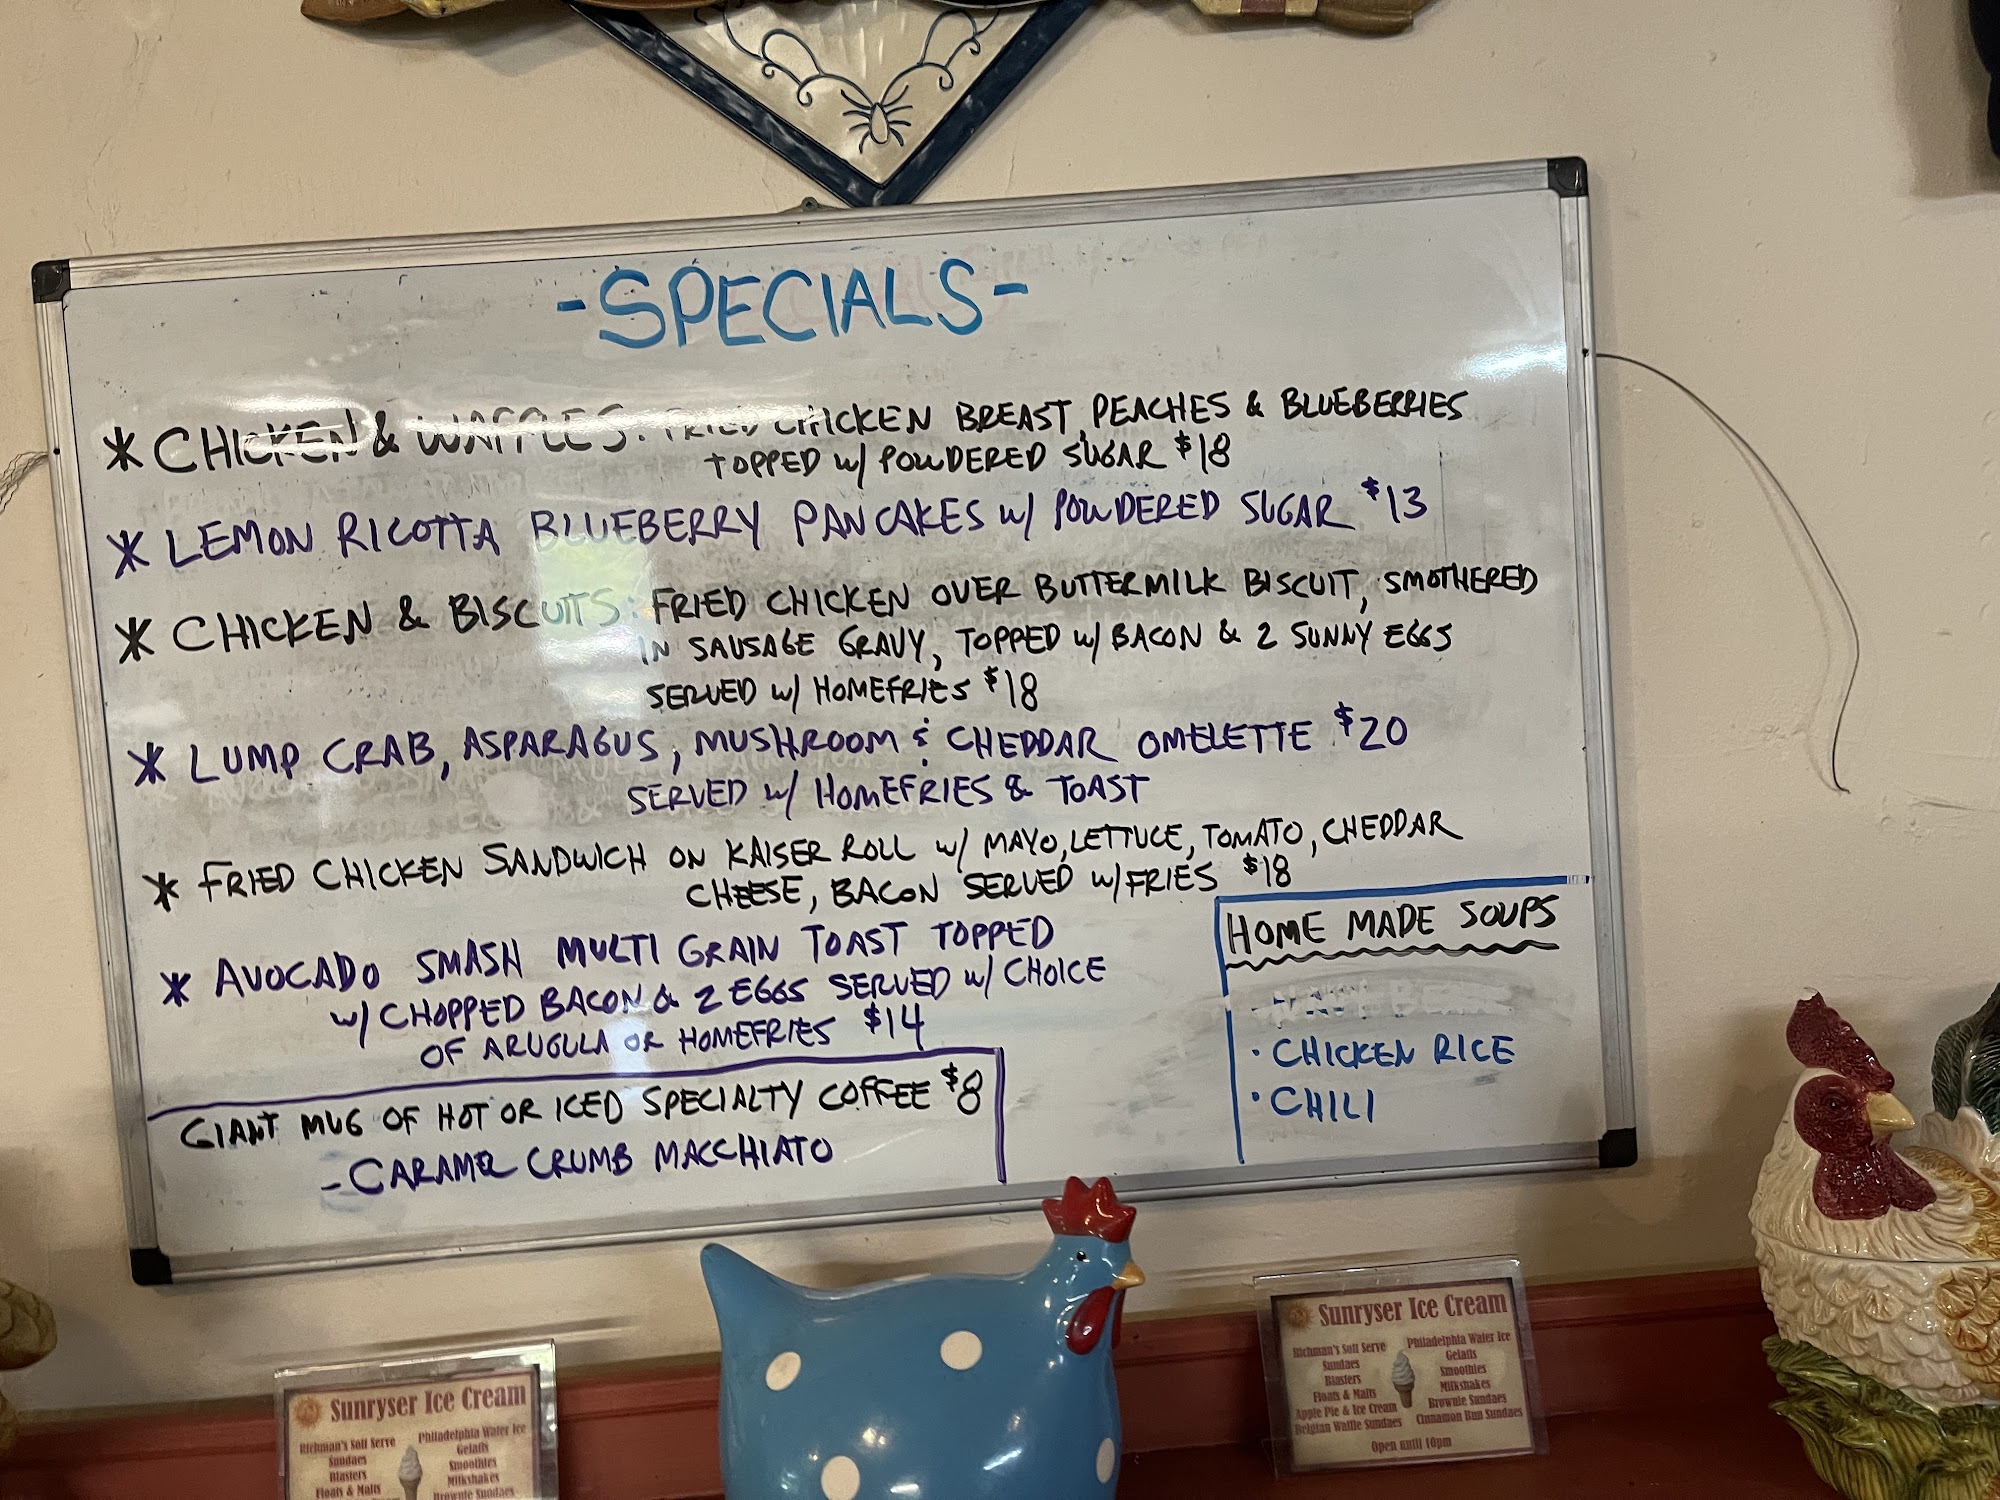 -SPECIALS-
* CHICKEN & WAFFLES: FRIED CHICKEN BREAST, PEACHES & BLUEBERRIES
TOPPED w/ POWDERED SUGAR $18
* LEMON RICOTTA BLUEBERRY PANCAKES w/ POWDERED SUGAR $13
* CHICKEN & BISCUITS: FRIED CHICKEN OVER BUTTERMILK BISCUIT, SMOTHERED
IN SAUSAGE GRAVY, TOPPED w/ BACON & 2 SUNNY EGGS
SERVED w/ HOMEFRIES $18
* LUMP CRAB, ASPARAGUS, MUSHROOM & CHEDDAR OMELETTE $20
SERVED w/ HOMEFRIES & TOAST
* FRIED CHICKEN SANDWICH ON KAISER ROLL w/ MAYO, LETTUCE, TOMATO, CHEDDAR
CHEESE, BACON SERVED w/ FRIES $18
* AVOCADO SMASH MULTI GRAIN TOAST TOPPED
w/ CHOPPED BACON & 2 EGGS SERVED w/ CHOICE
OF ARUGULA OR HOMEFRIES $14
GIANT MUG OF HOT OR ICED SPECIALTY COFFEE $8
- CARAMEL CRUMB MACCHIATO
HOME MADE SOUPS
• CHICKEN RICE
• CHILI
Sunryser Ice Cream
Richman's Soft Serve
Sundaes
Blasters
Floats & Malts
Philadelphia Water Ice
Gelatis
Smoothies
Milkshakes
Brownie Sundaes
Sunryser Ice Cream
Richman's Soft Serve
Sundaes
Blasters
Floats & Malts
Apple Pie & Ice Cream
Belgian Waffle Sundaes
Philadelphia Water Ice
Gelatis
Smoothies
Milkshakes
Brownie Sundaes
Cinnamon Bun Sundaes
Open until 10pm